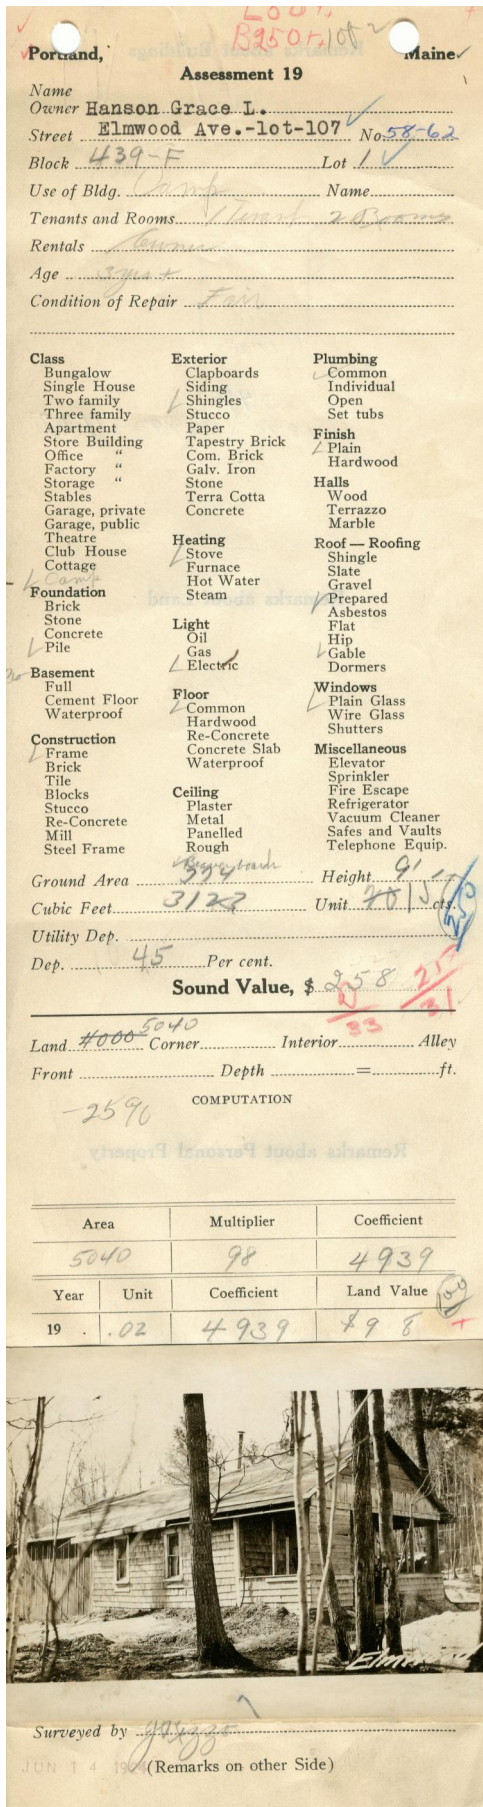 B250 r.
Portland, Maine
Assessment 19
Name
Owner Hanson Grace L.
Street Elmwood Ave.-lot-107 No. 58-62
Block 439-F Lot 1
Use of Bldg. Camp Name
Tenants and Rooms 1 Tenant 2 Rooms
Rentals Owner
Age 3 yrs +
Condition of Repair Fair
Class
Bungalow
Single House
Two family
Three family
Apartment
Store Building
Office "
Factory "
Storage "
Stables
Garage, private
Garage, public
Theatre
Club House
Cottage
Camp
Foundation
Brick
Stone
Concrete
Pile
Basement
Full
Cement Floor
Waterproof
Construction
Frame
Brick
Tile
Blocks
Stucco
Re-Concrete
Mill
Steel Frame
Exterior
Clapboards
Siding
Shingles
Stucco
Paper
Tapestry Brick
Com. Brick
Galv. Iron
Stone
Terra Cotta
Concrete
Heating
Stove
Furnace
Hot Water
Steam
Light
Oil
Gas
Electric
Floor
Common
Hardwood
Re-Concrete
Concrete Slab
Waterproof
Ceiling
Plaster
Metal
Panelled
Rough
Beaverboard
Plumbing
Common
Individual
Open
Set tubs
Finish
Plain
Hardwood
Halls
Wood
Terrazzo
Marble
Roof — Roofing
Shingle
Slate
Gravel
Prepared
Asbestos
Flat
Hip
Gable
Dormers
Windows
Plain Glass
Wire Glass
Shutters
Miscellaneous
Elevator
Sprinkler
Fire Escape
Refrigerator
Vacuum Cleaner
Safes and Vaults
Telephone Equip.
Ground Area Height 9'
Cubic Feet 3123 Unit 15 cts.
Utility Dep.
Dep. 45 Per cent.
Sound Value, $ 258
33
25
31
Land 4000 5040 Corner Interior Alley
Front Depth = ft.
COMPUTATION
-25%
Area Multiplier Coefficient
5040 98 4939
Year Unit Coefficient Land Value
19 . .02 4939 $98
Surveyed by
JUN 14 192
(Remarks on other Side)